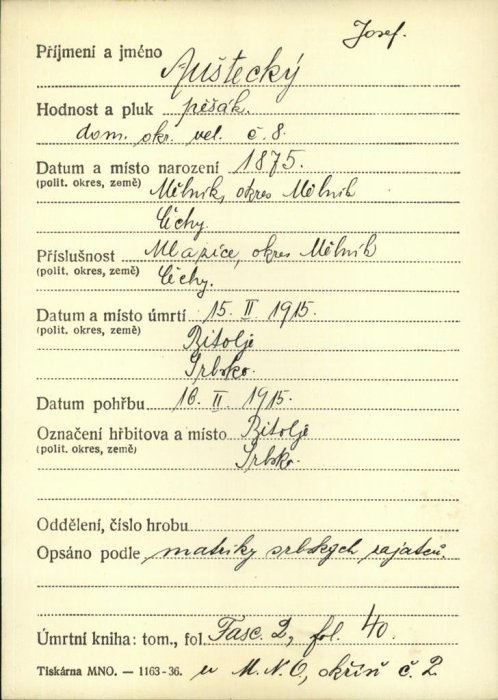 Josef.
Příjmení a jméno Auštecký
Hodnost a pluk pěšák.
dom. okr. vel. č. 8.
Datum a místo narození 1875.
(polit. okres, země) Mělník, okres Mělník
Čechy.
Příslušnost Mlazice, okres Mělník
(polit. okres, země) Čechy.
Datum a místo úmrtí 15. II. 1915.
(polit. okres, země) Bitolje
Srbsko.
Datum pohřbu 16. II. 1915.
Označení hřbitova a místo Bitolje
(polit. okres, země) Srbsko.
Oddělení, číslo hrobu
Opsáno podle matriky srbských zajatců.
Úmrtní kniha: tom., fol. Fasc. 2, fol. 40.
Tiskárna MNO. — 1163-36. v M.N.O, skříň č. 2